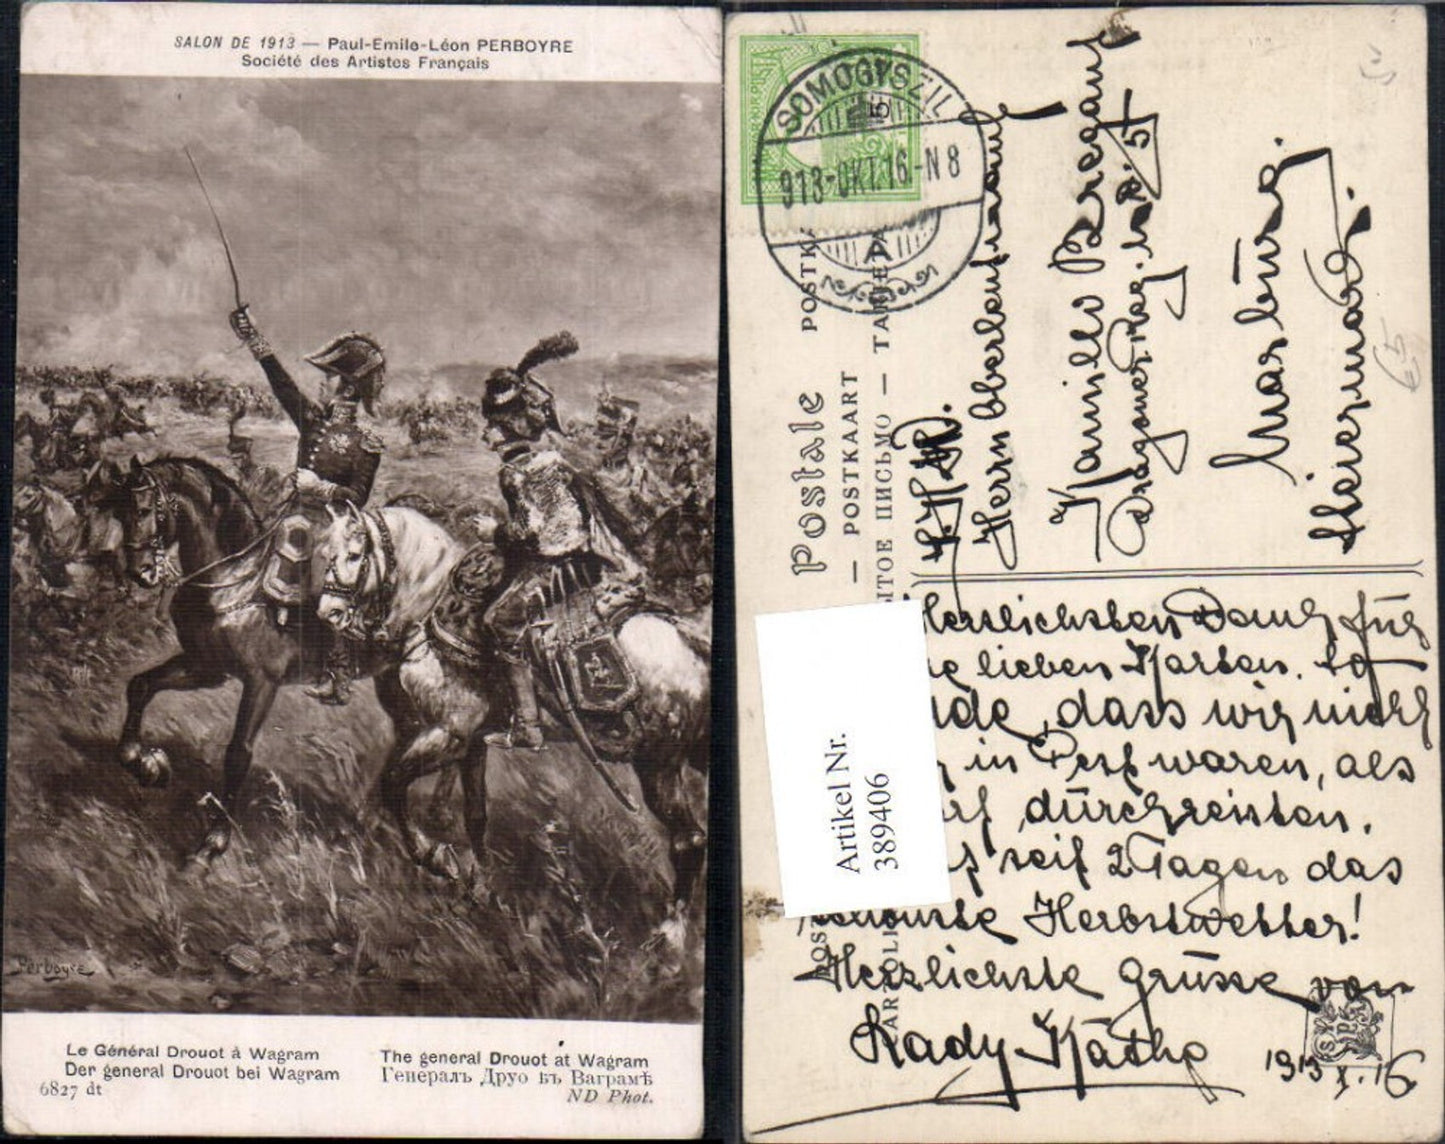 SALON DE 1913 — Paul-Emile-Léon PERBOYRE
Société des Artistes Français
Perboyre
Le Général Drouot à Wagram
Der general Drouot bei Wagram
6827 dt
The general Drouot at Wagram
Генералъ Друо въ Ваграмѣ
ND Phot.
SOMOGYSZIL
913-OKT.16.-N8
A
5
Postale
POSTKAART
ПИСЬМО
Herrn Oberleutnant
Kamillo
Dragoner Reg. No. 5
Marburg.
Steiermark.
Herzlichsten Dank für
lieben Karten. So
dass wir nicht
in Pest waren, als
durchreisten.
seit 2 Tagen das
Herbstwetter!
Herzlichste Grüsse von
Käthe
1913 X. 16
Artikel Nr.
389406